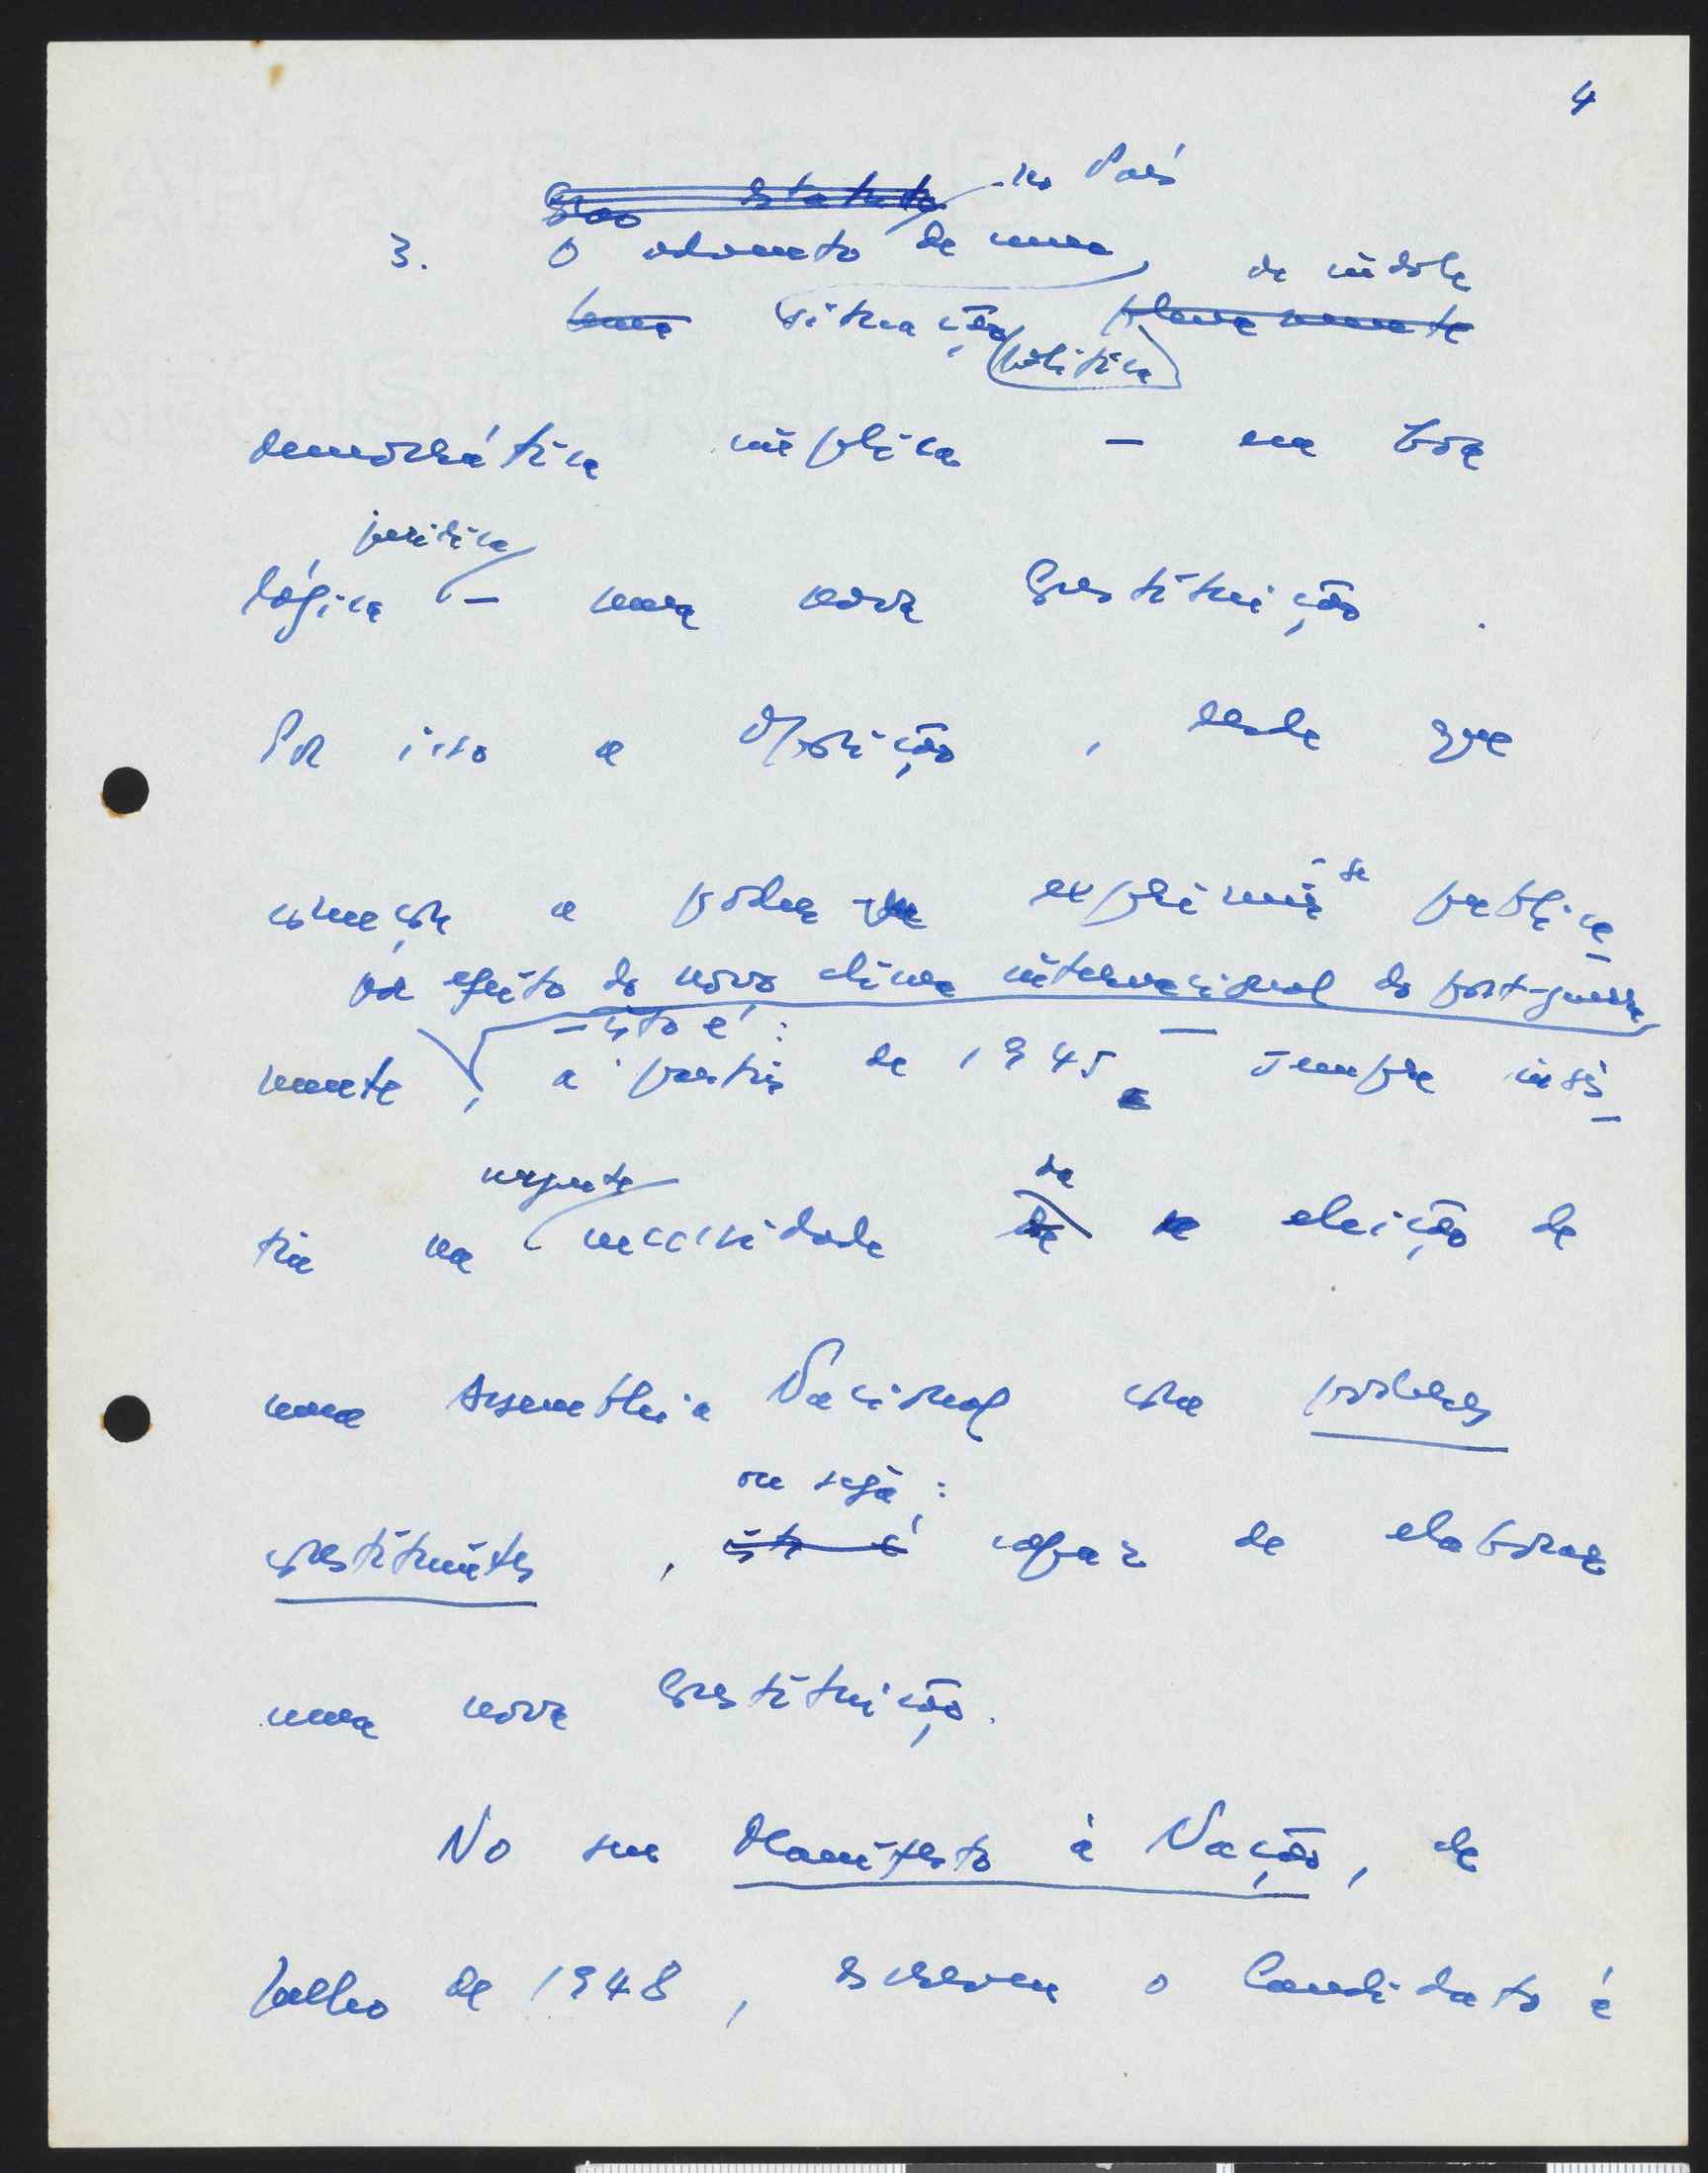 4
no País
3. O advento de uma
de índole
situação política
democrática implica — na boa
jurídica
lógica — uma nova Constituição.
Por isso a Oposição, desde que
começou a poder exprimir-se publica-
por efeito do novo clima internacional do post-guerra
— isto é:
mente, a partir de 1945 — sempre insis-
urgente
da
tiu na necessidade eleição de
uma Assembleia Nacional com poderes
ou seja:
constituintes, isto é capaz de elaborar
uma nova Constituição.
No seu Manifesto à Nação, de
Julho de 1948, escreveu o Candidato à